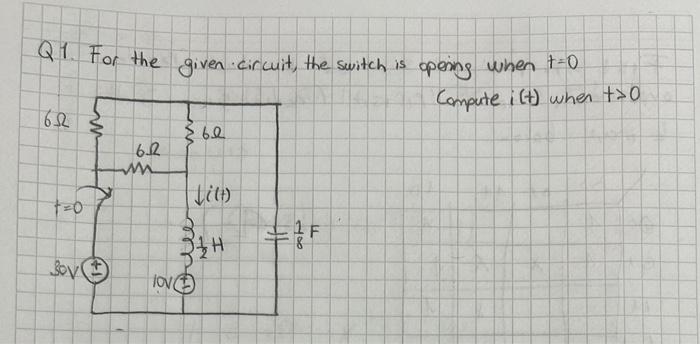 Q1. For the given circuit, the switch is opening when t=0
Compute i(t) when t>0
6Ω
6Ω
6Ω
t=0
↓i(t)
1/2 H
1/8 F
30V
10V